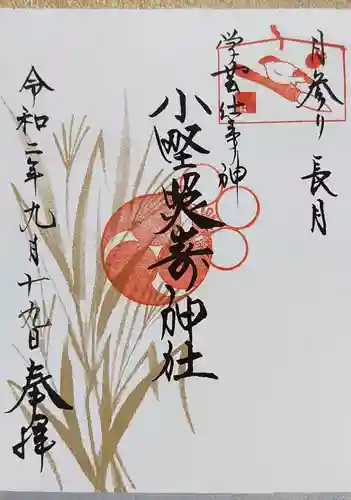 月参り 長月
学芸仕事神
小野照崎神社
令和二年九月十九日 奉拝